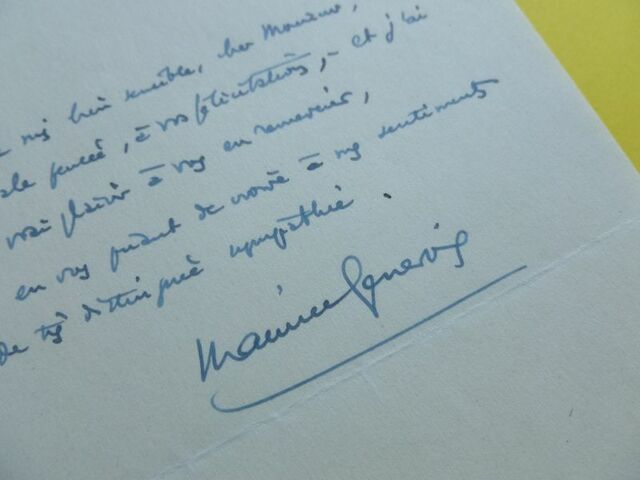 suis bien sensible, cher Monsieur,
pensée, à vos félicitations, – et j'ai
vrai plaisir à vous en remercier,
en vous priant de croire à mes sentiments
de très distinguée sympathie.
Maurice Genevoix